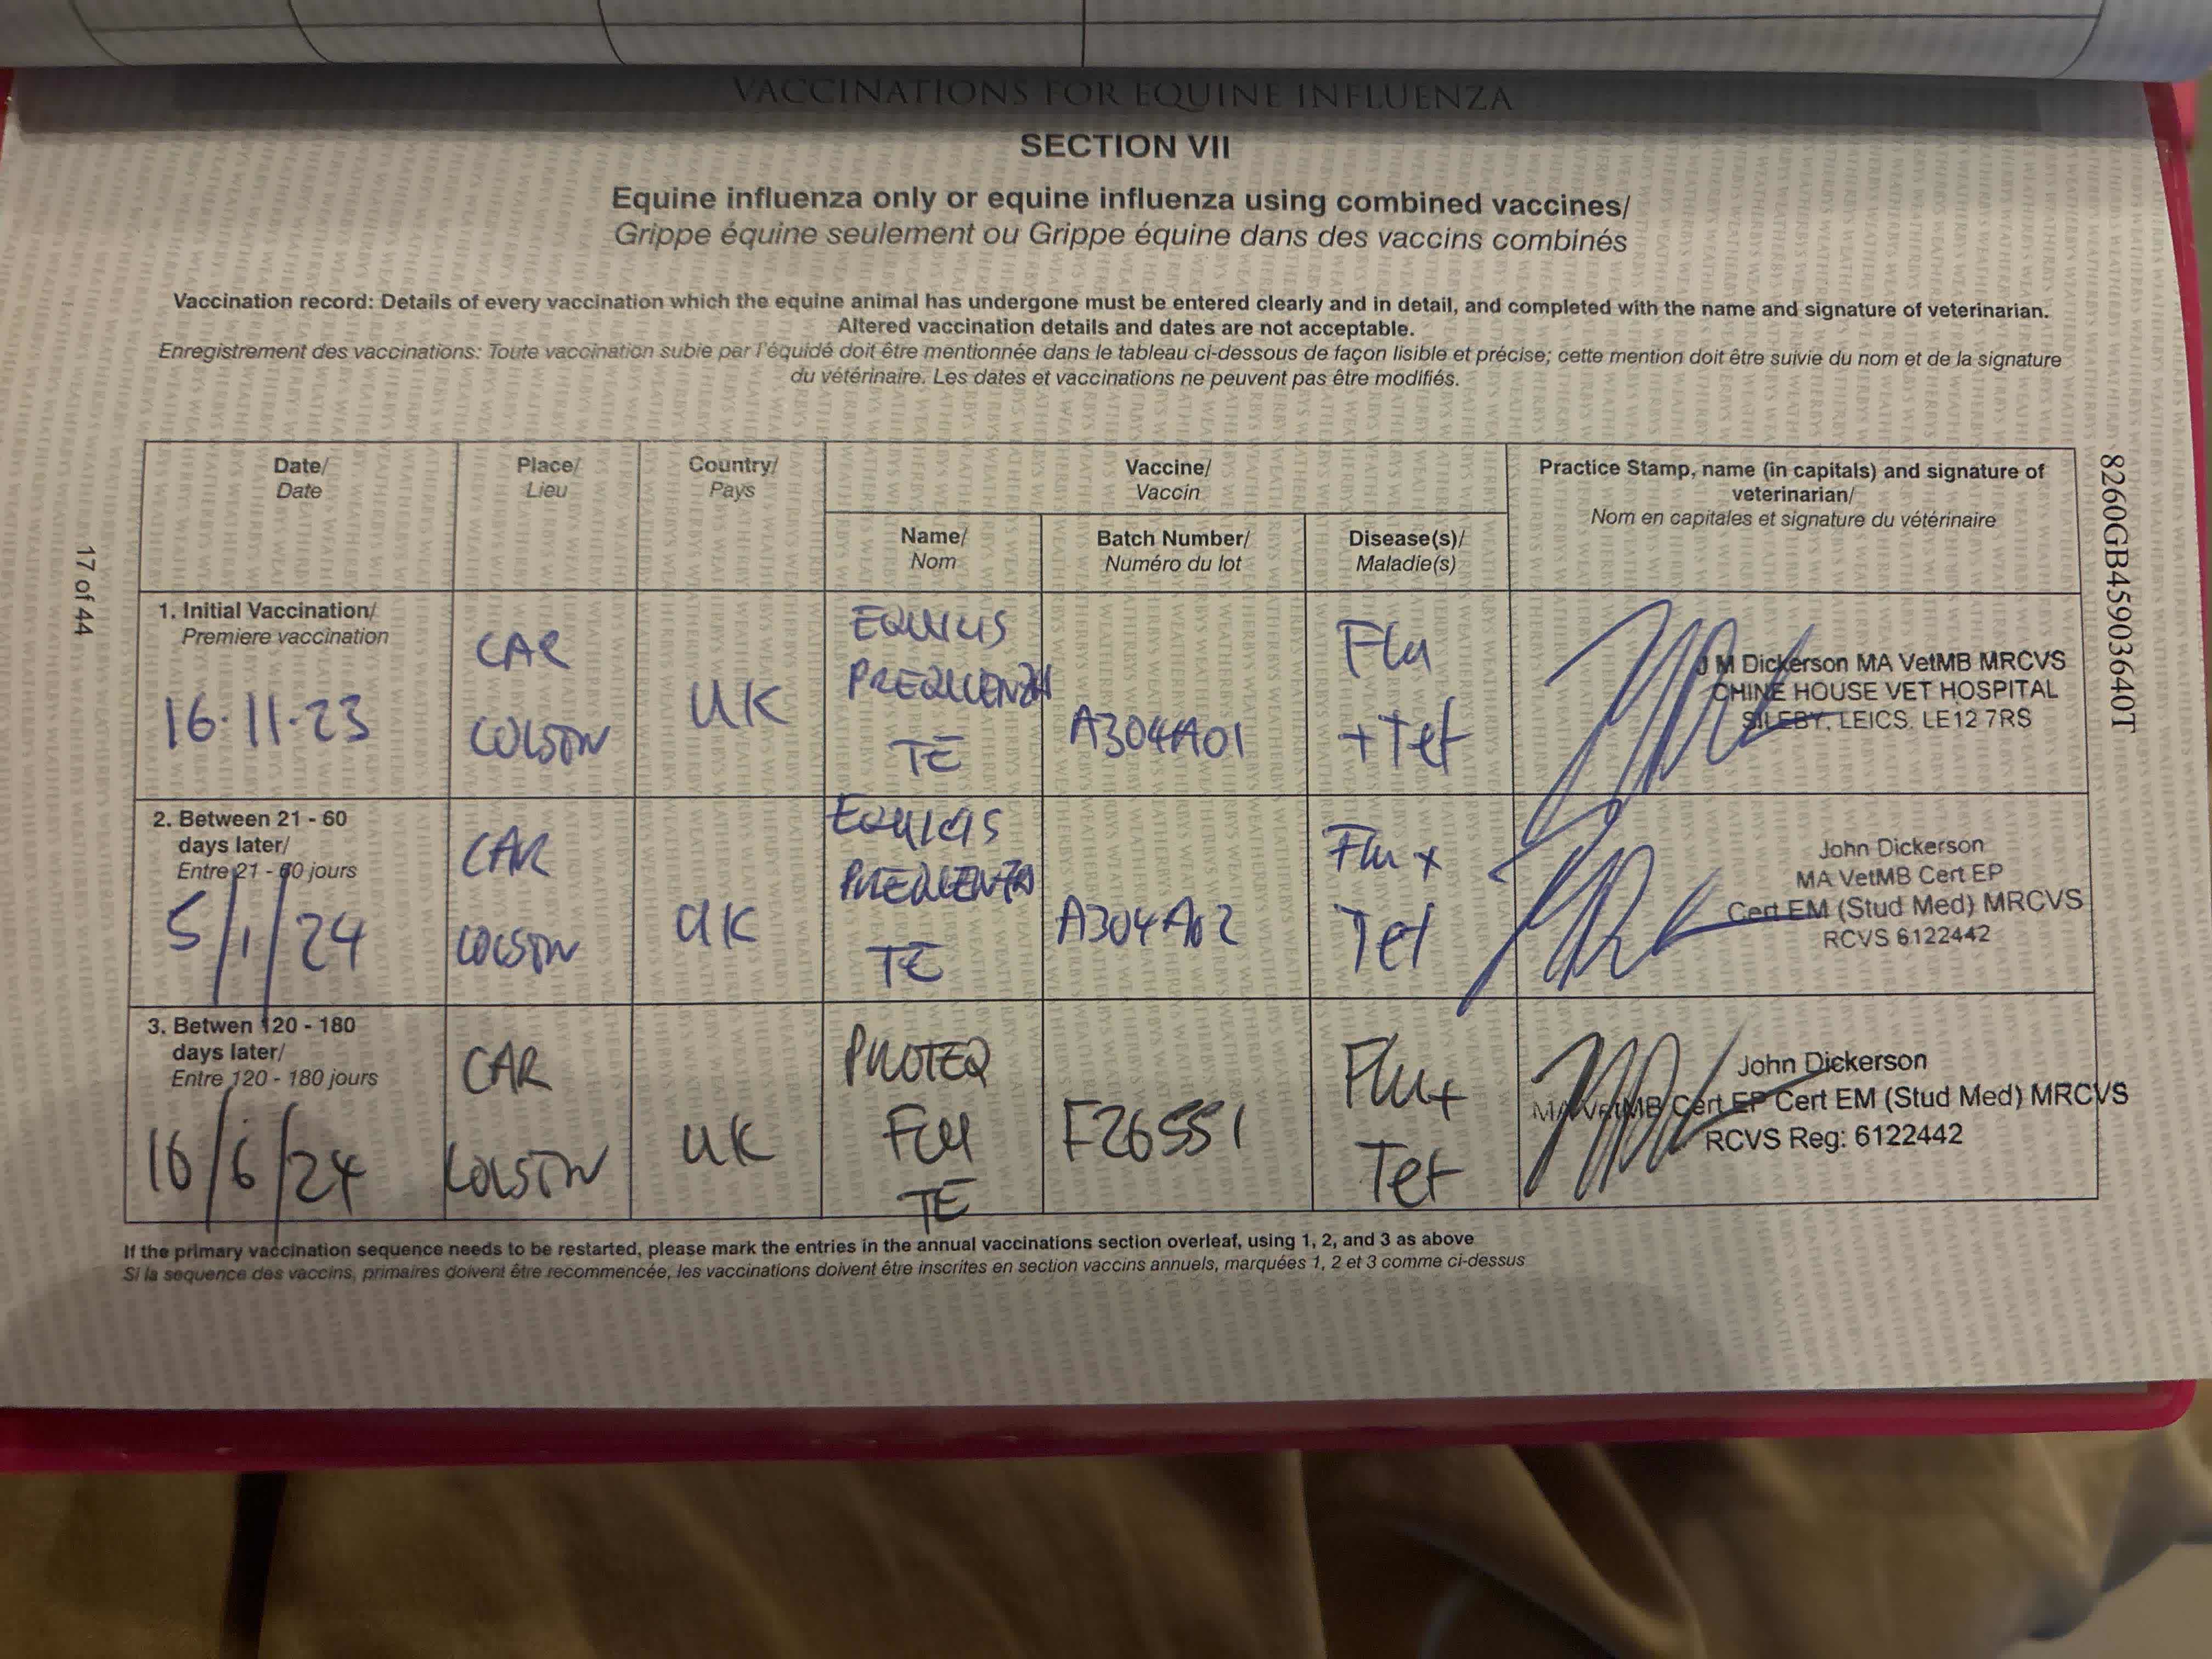 VACCINATIONS FOR EQUINE INFLUENZA
SECTION VII
Equine influenza only or equine influenza using combined vaccines/
Grippe équine seulement ou Grippe équine dans des vaccins combinés
Vaccination record: Details of every vaccination which the equine animal has undergone must be entered clearly and in detail, and completed with the name and signature of veterinarian.
Altered vaccination details and dates are not acceptable.
Enregistrement des vaccinations: Toute vaccination subie par l'équidé doit être mentionnée dans le tableau ci-dessous de façon lisible et précise; cette mention doit être suivie du nom et de la signature
du vétérinaire. Les dates et vaccinations ne peuvent pas être modifiés.
Date/
Date
Place/
Lieu
Country/
Pays
Vaccine/
Vaccin
Practice Stamp, name (in capitals) and signature of
veterinarian/
Nom en capitales et signature du vétérinaire
Name/
Nom
Batch Number/
Numéro du lot
Disease(s)/
Maladie(s)
1. Initial Vaccination/
Premiere vaccination
16.11.23
CAR
COLSTON
UK
EQUILIS
PREQUENZA
TE
A304A01
Flu
+Tet
J M Dickerson MA VetMB MRCVS
CHINE HOUSE VET HOSPITAL
SILEBY. LEICS. LE12 7RS
2. Between 21 - 60
days later/
Entre 21 - 60 jours
5/1/24
CAR
COLSTON
UK
EQUILIS
PREQUENZA
TE
A304A02
Flu +
Tet
John Dickerson
MA VetMB Cert EP
Cert EM (Stud Med) MRCVS
RCVS 6122442
3. Betwen 120 - 180
days later/
Entre 120 - 180 jours
16/6/24
CAR
COLSTON
UK
PROTEQ
FLU
TE
F26551
Flu+
Tet
John Dickerson
MA VetMB Cert EP Cert EM (Stud Med) MRCVS
RCVS Reg: 6122442
If the primary vaccination sequence needs to be restarted, please mark the entries in the annual vaccinations section overleaf, using 1, 2, and 3 as above
Si la sequence des vaccins, primaires doivent être recommencée, les vaccinations doivent être inscrites en section vaccins annuels, marquées 1, 2 et 3 comme ci-dessus
17 of 44
8260GB45903640T